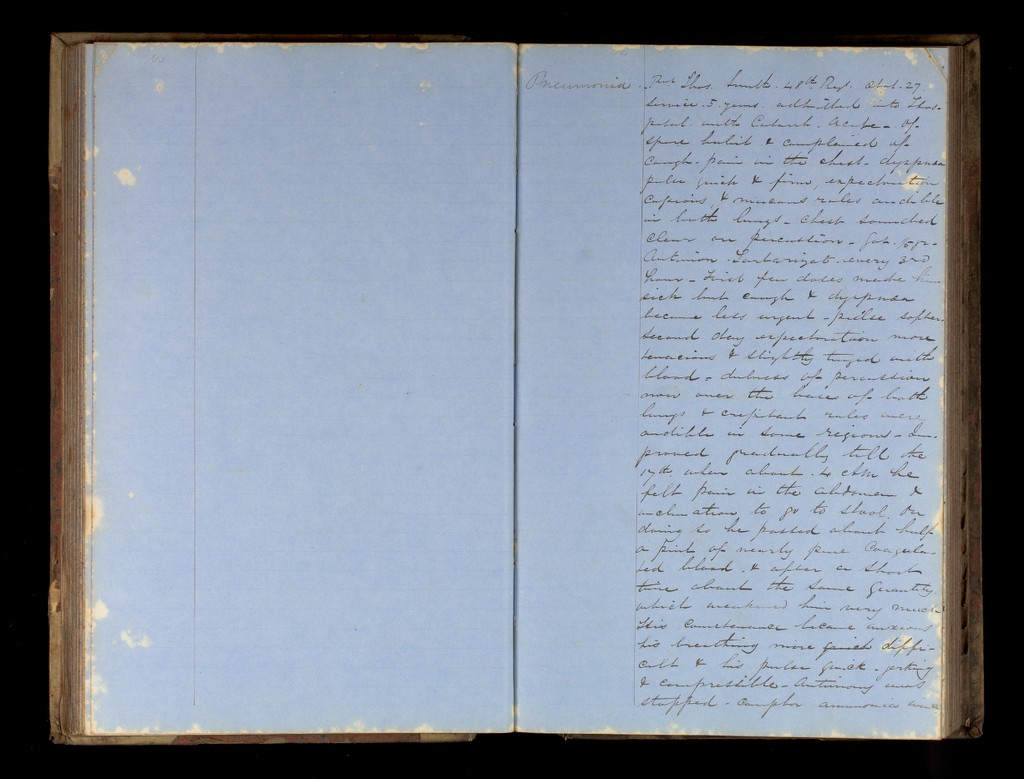 Pneumonia.
Thos. Smith. 48th Regt. Aetat. 27.
Service. 5. years. admitted into Hos-
pital. with Catarrh. Acute - Of-
spare habit & complained of
cough - pain in the chest - dyspnoea
pulse quick & firm, expectoration
copious, & mucous rales audible
in both lungs - chest sounded
clear on percussion - Got
Antimon. Tartarizat. every 3rd
hour - First few doses made him
sick but cough & dyspnoea
became less urgent - pulse softer.
Second day expectoration more
tenacious & slightly tinged with
blood - dulness of percussion
now over the base of both
lungs & crepitant rales were
audible in same regions - Im-
proved gradually till the
17th when about .4 AM he
felt pain in the abdomen &
inclination to go to stool. On
doing so he passed about half
a pint of nearly pure Coagula-
ted blood. & after a short
time about the same quantity
which weakened him very much
His Countenance became anxious
his breathing more quick diffi-
cult & his pulse quick - jerking
& compressible - Antimony was
stopped - camphor ammonia